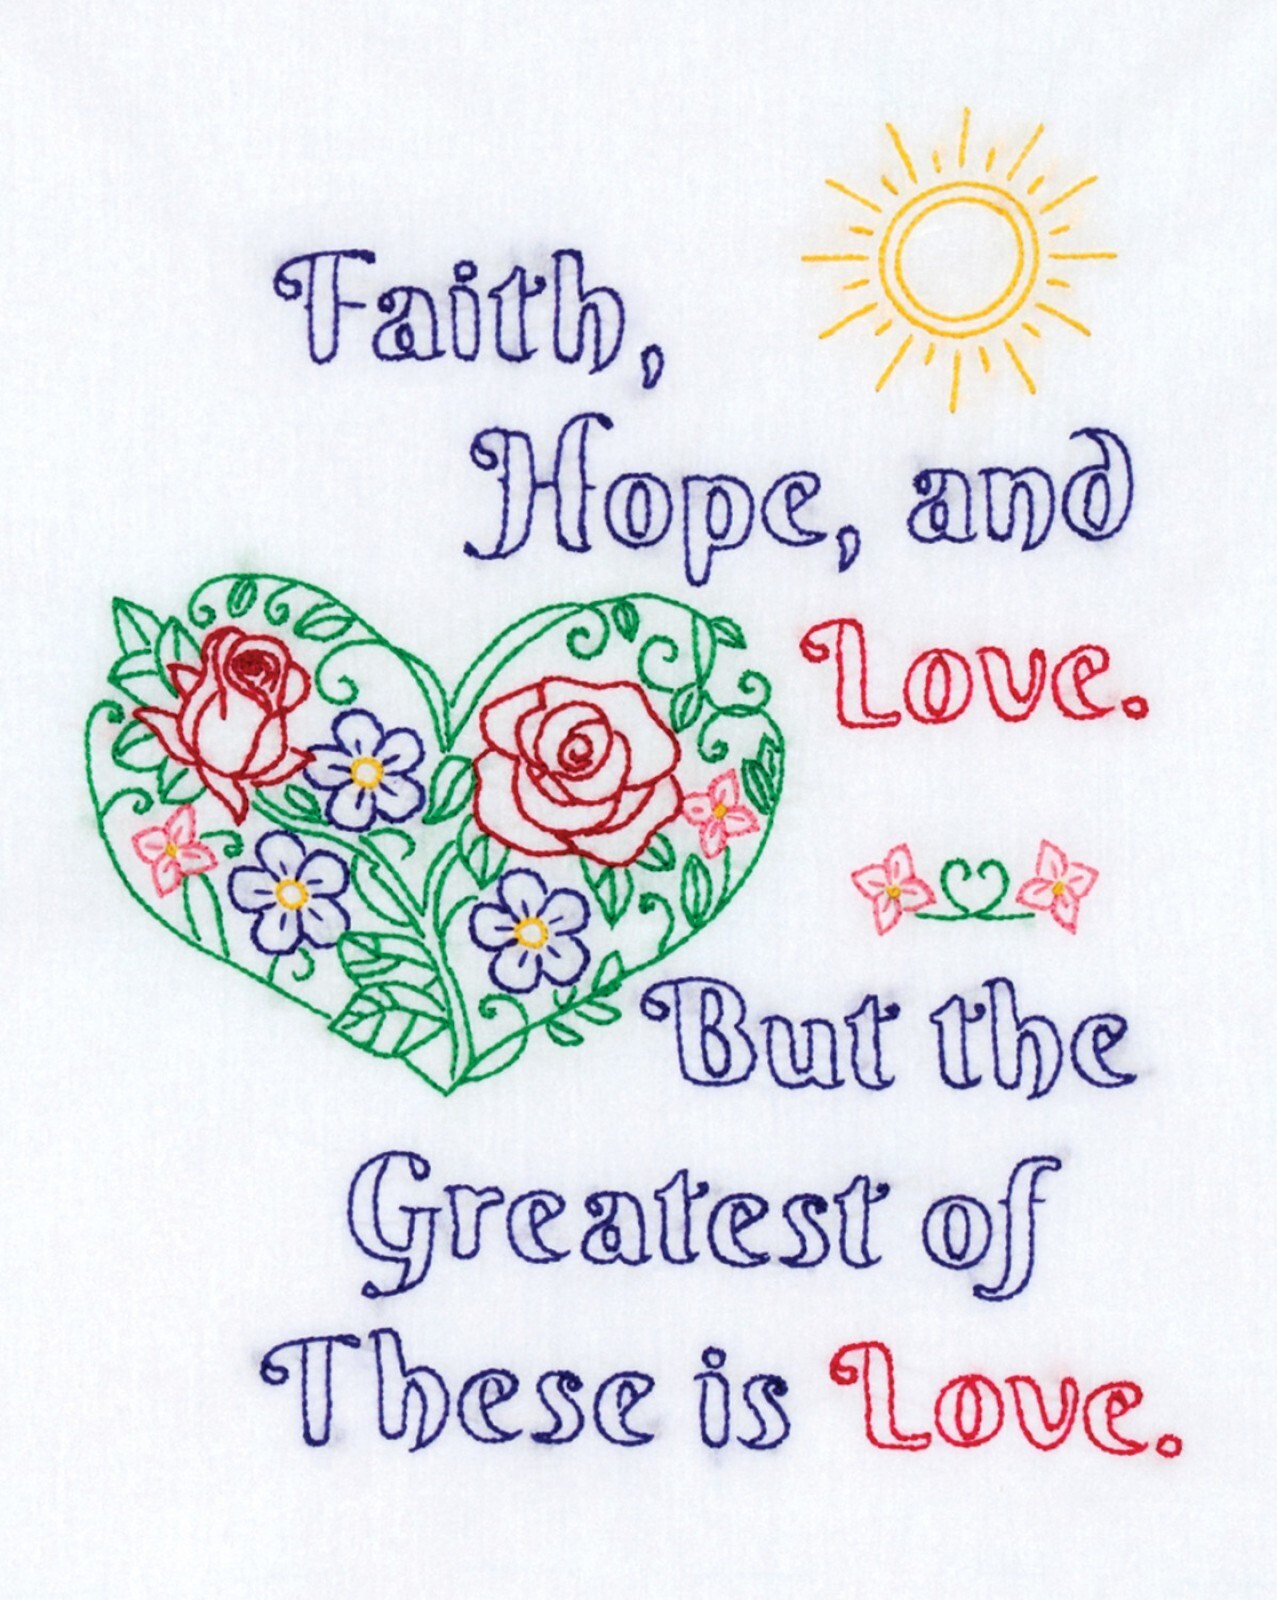 Faith,
Hope, and
Love.
But the
Greatest of
These is Love.